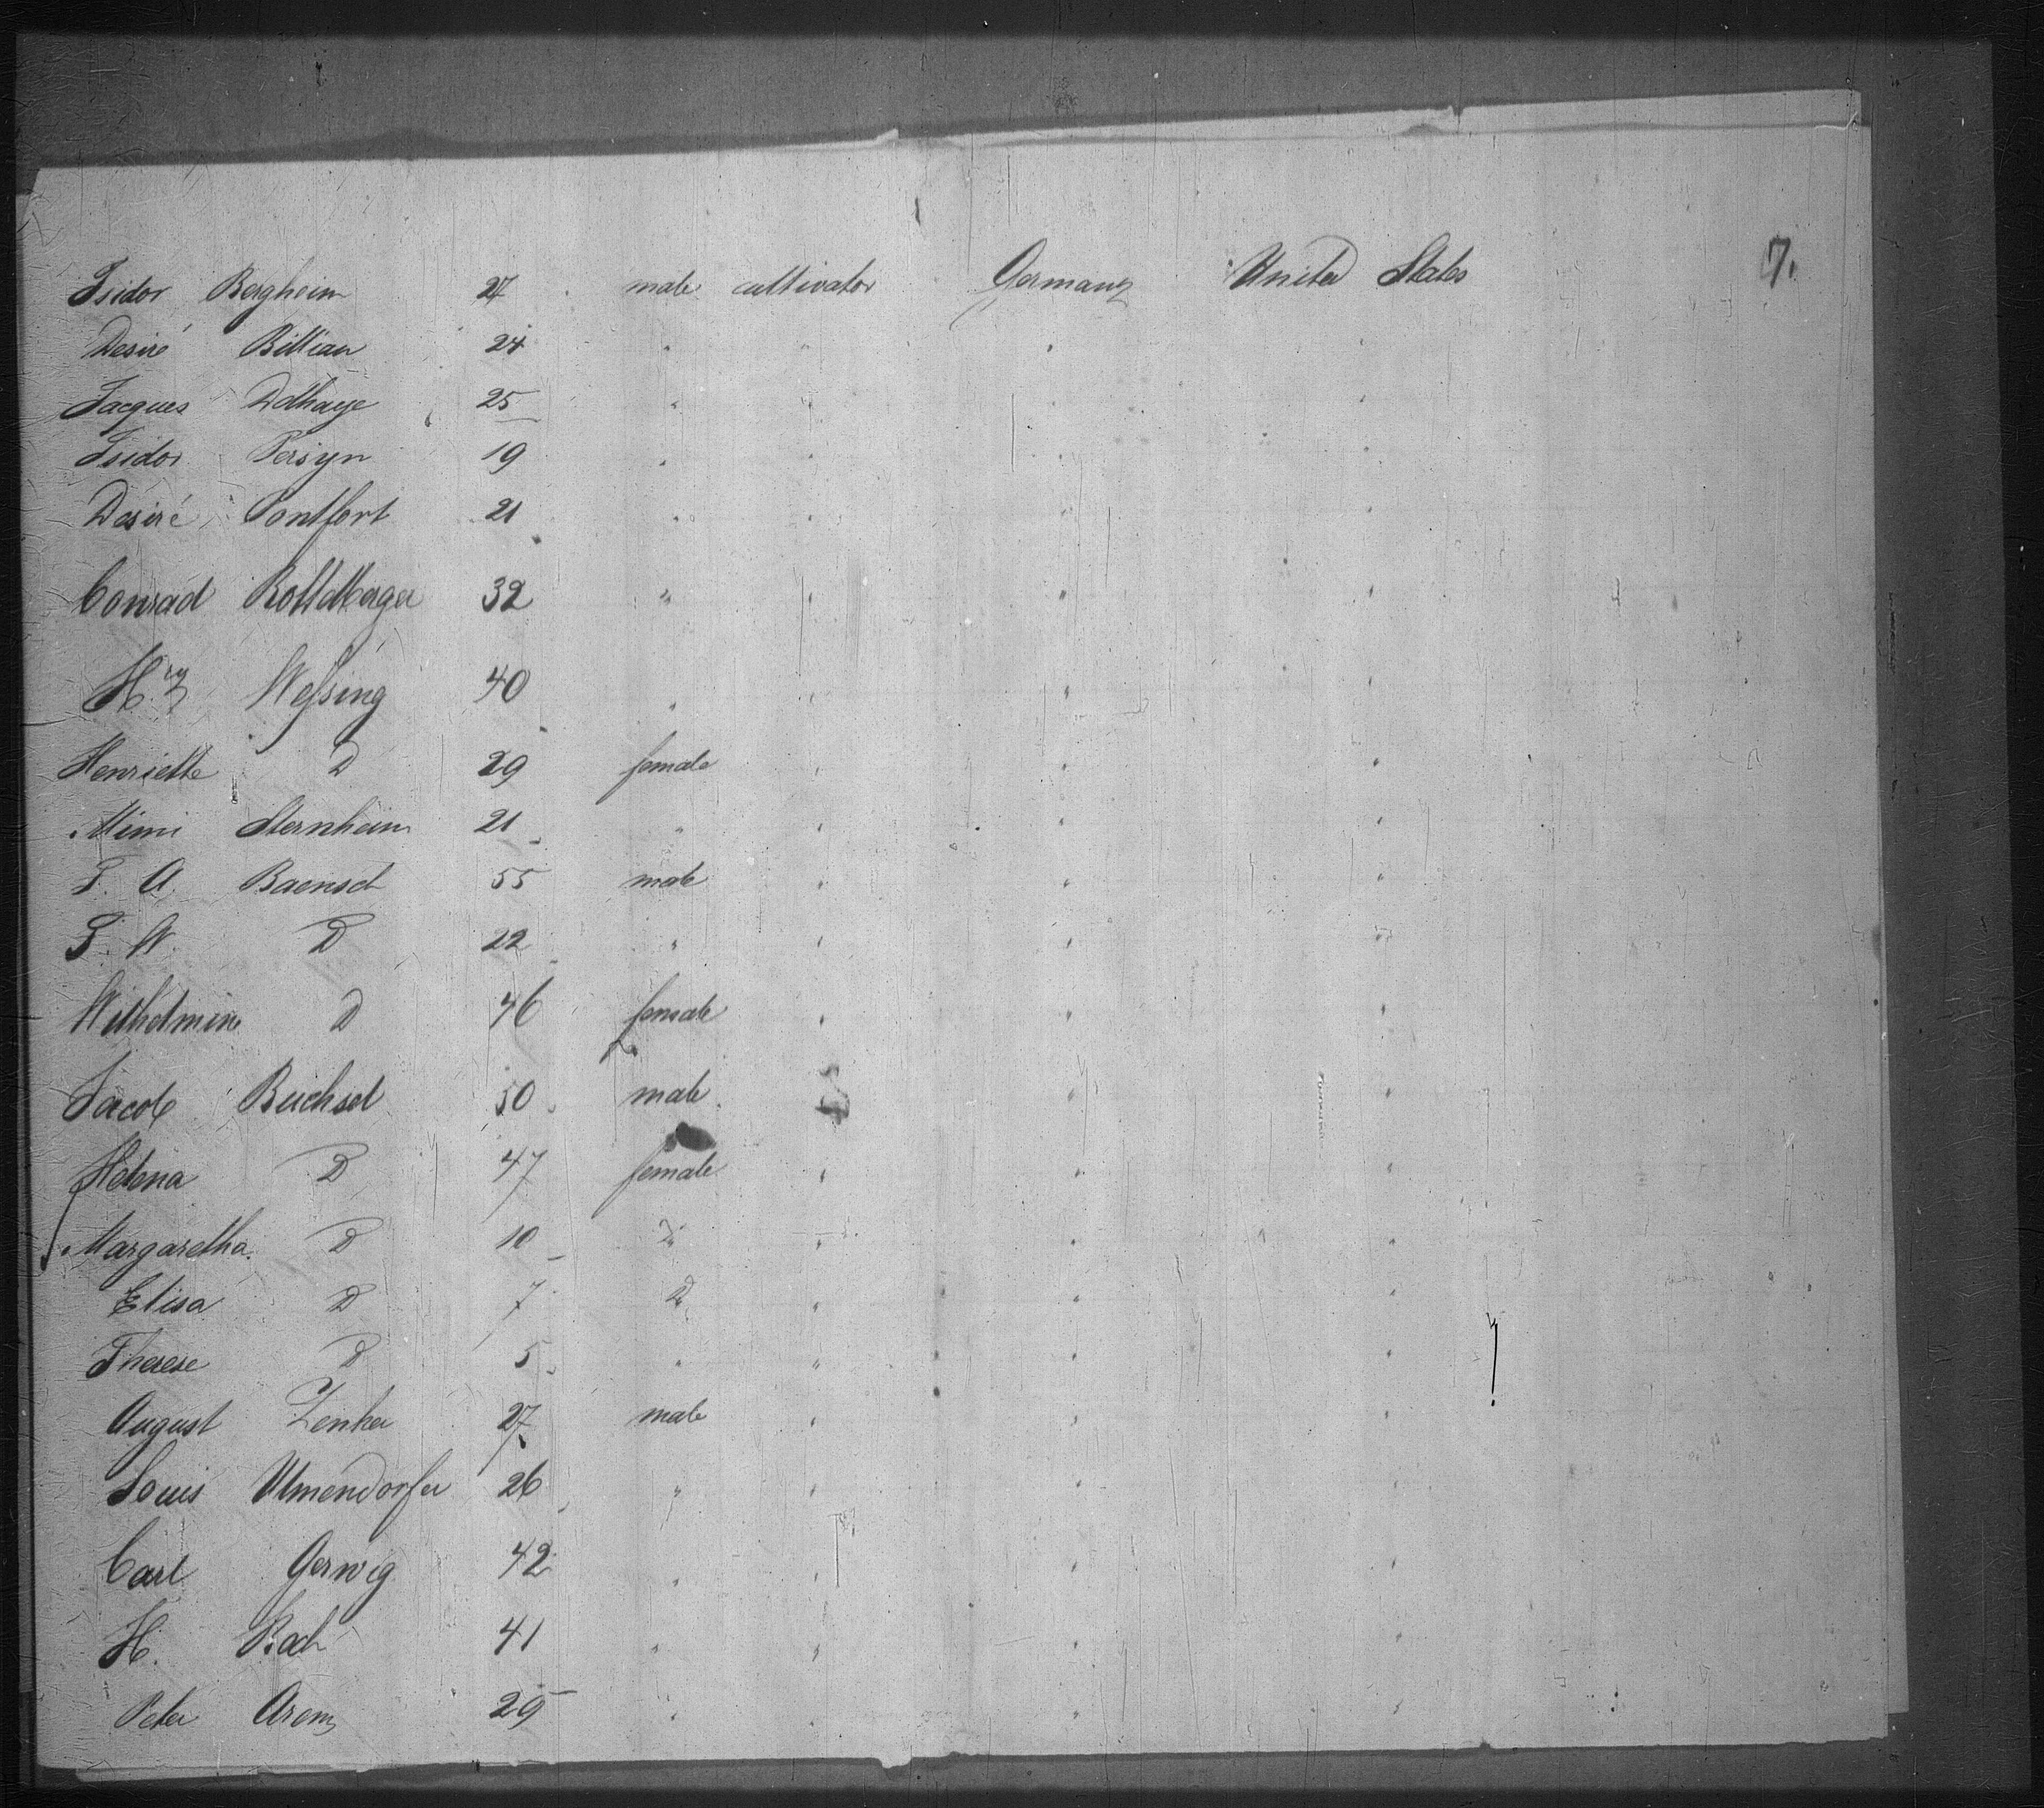 7.
Isidor Bergheim 27 male cultivator Germany United States
Desiré Billian 24 " " " "
Jacques Delhaye 25 " " " "
Isidor Persyn 19 " " " "
Desiré Pontfort 21 " " " "
Conrad 32 " " " "
Hry Wessing 40 " " " "
Henriette D 29 female " " "
Mimi Sternheim 21 " " " "
F. A. Baensch 55 male " " "
F. W. D 22 " " " "
Wilhelmine D 46 female " " "
Jacob Buchsel 50 male " "
Helena D 47 female " " "
Margaretha D 10 " " " "
Elisa D 7 D " " "
Therese D 5 " " " "
August Zenker 27 male " " "
Louis Ulmendorfer 26 " " " "
Carl Gerwig 42 " " " "
H. Koch 41 " " " "
Peter Arens 25 " " " "